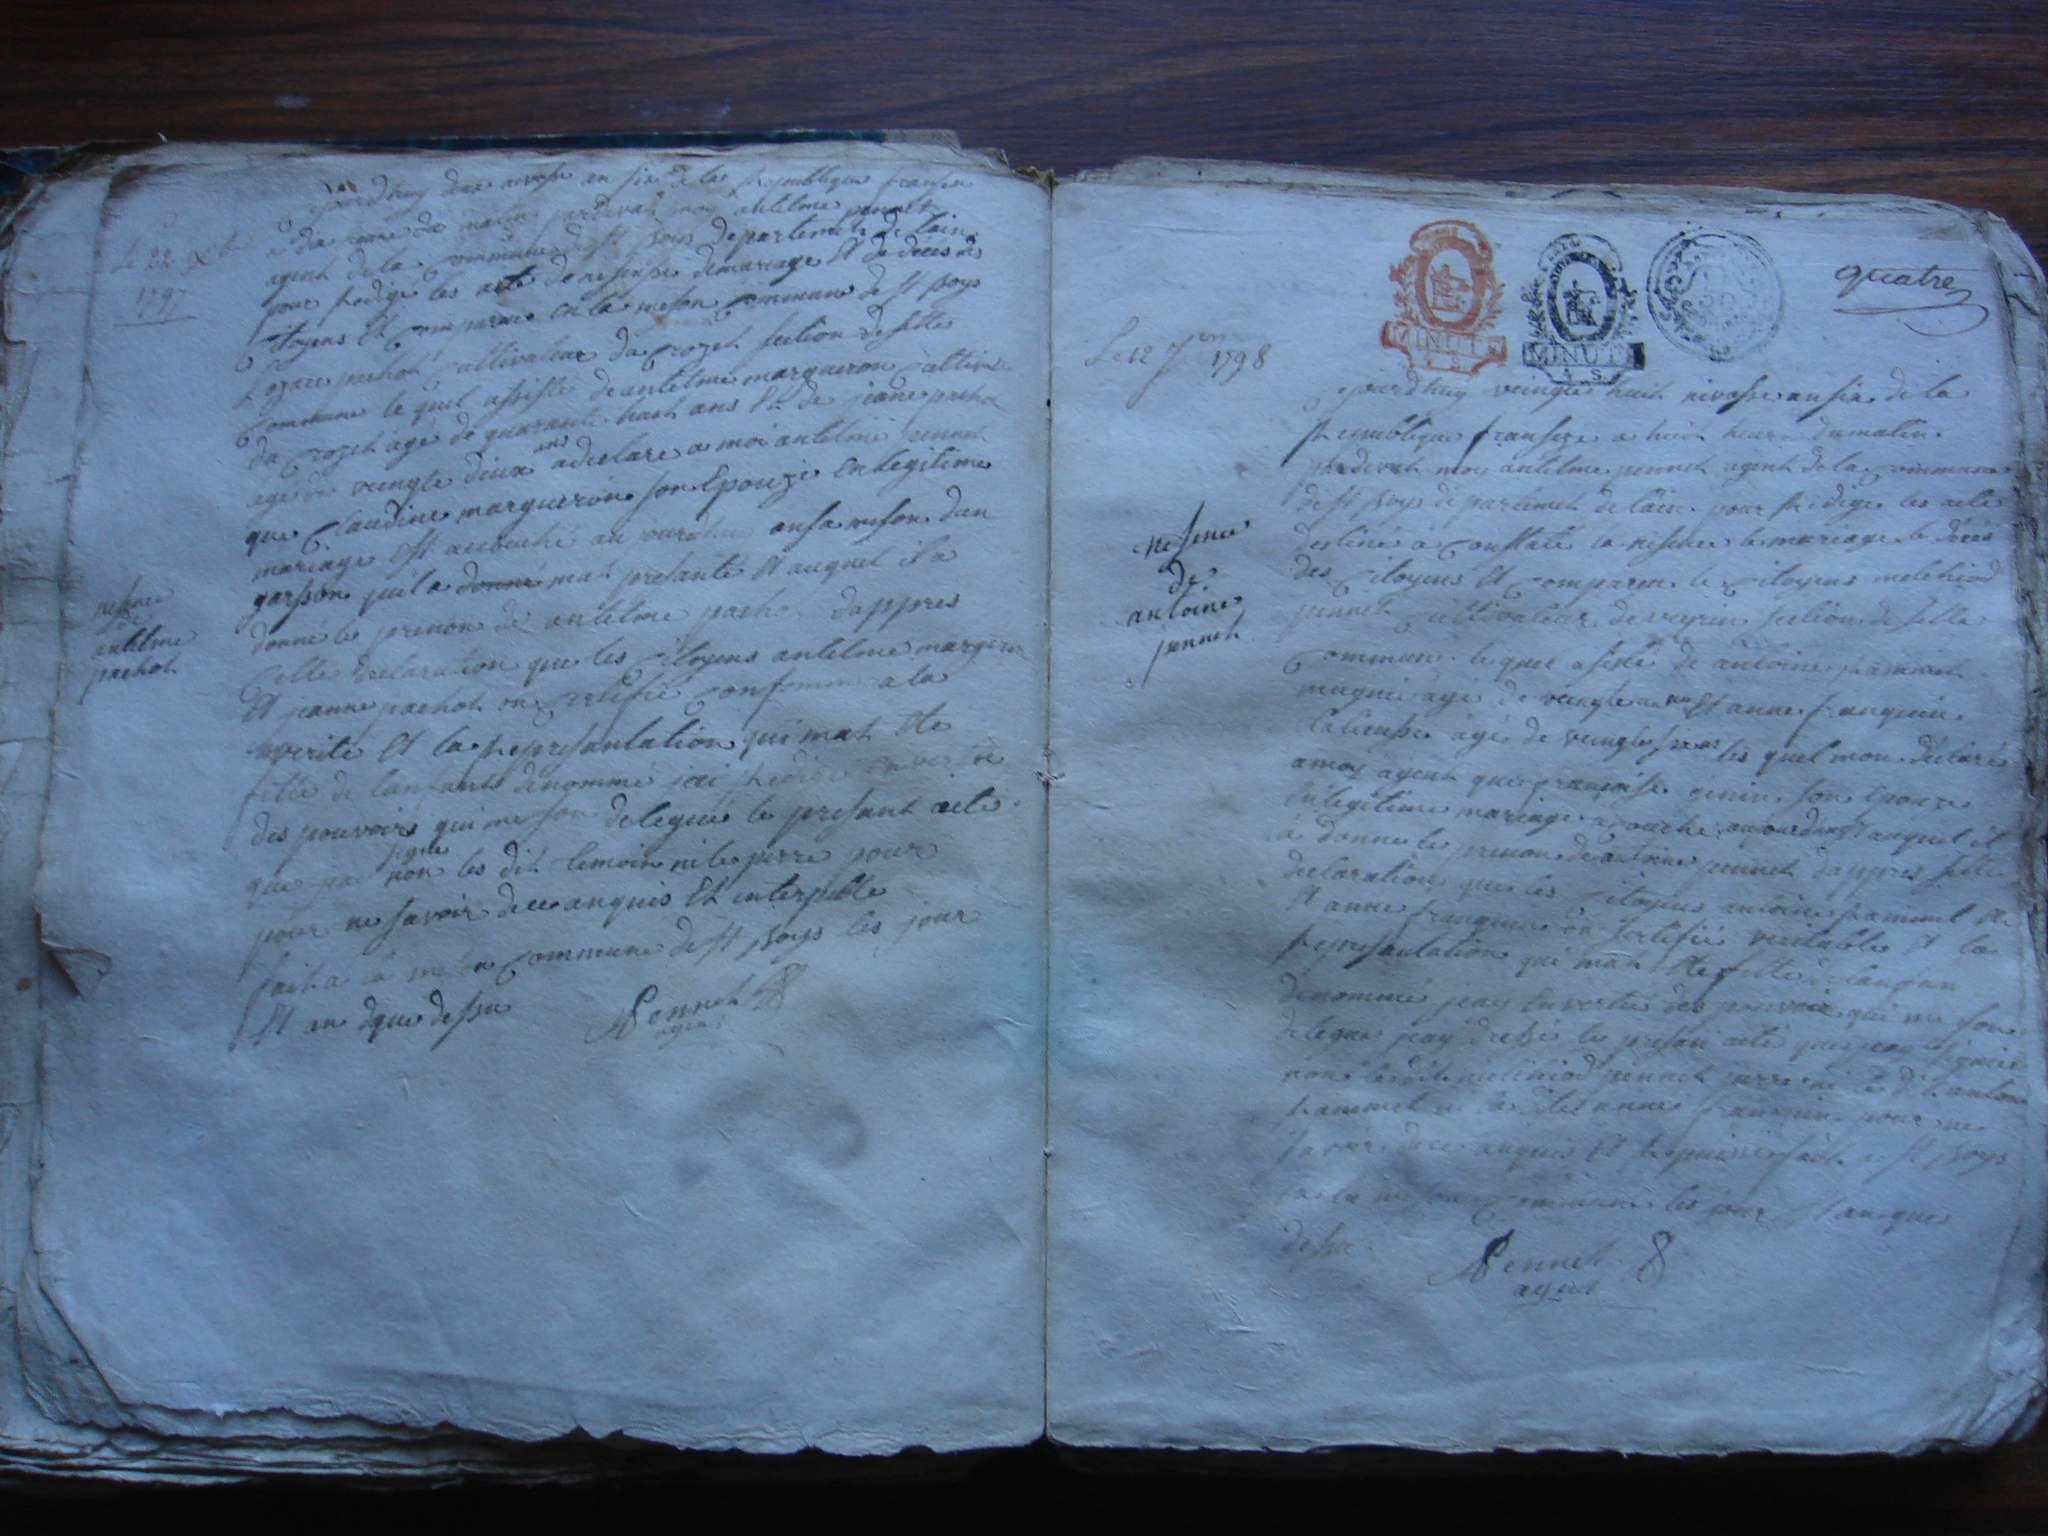 Le 22 Xbre
1797
aujourdhuy deux nivose an six de la Republique franseze
a dix heure du matin pardevant moy antelme pennet
agent de la commune de St Bois departement de lain
pour redigé les acte de nesense de mariage et de décès des
citoyens et comparu en la meson commune de St Boys
pachot cultivateur du crozet section de sette
commune le quel assisté de antelme margueron cultivateur
du crozet agé de quarante huit ans et de jeane pachot
agé de veingte deux ans a declare a moi antelme pennet
que Claudine margueron son Epouze en legitime
mariage est acouché au jourdhui en sa meson dun
garson quil a donné mat presanté et auquel il a
donné le prenon de antelme pachot dappres
cette declaration que les citoyens antelme margeron
et jeanne pachot on certifié conforme a la
verité et la representation qui mat ete
fitte de lanfants denommé jai redigé en vertue
des pouvoirs qui me son delegué le presant acte
que jai signé non les dit temoin ni le perre pour
pour ne savoir de ce anquis et interpellé
fait a la meson commune de St Boys les jour
et an que dessu
Pennet
agent
nesence
de
antelme
pachot
quatre
MINUTE
MINUTE
Le 12 1798
aujourdhuy veingte huit nivosse an six de la
Republique franseze a huit heure du matin
pardevent moy antelme pennet agent de la commune
de St Boys departement de lain pour redige les acte
destiné à constaté la nesence le mariage le décès
des citoyens et comparu le citoyens melchiod
pennet cultivateur de veyrin section de sette
commune le quel asisté de antoine ramunet
agé de veingte ans et anne franquin
agé de veingte ans les quel mon déclaré
a moy agent que françoise genin son epouze
en legitime mariage acouché aujourdhuy auquel il
à donne le prenon de antoine pennet dappres sette
declaration que les citoyens antoine ramunet et
et anne franquin on sertifié veritable et la
representation qui mat ete fitte de lanfan
denommé jeay en vertue des pouvoir qui me son
delegué jeay dressé le presan acte que jeay signié
non le dit melchiod pennet perre ni le dit antoine
ramunet ni la ditte anne franquin pour ne
savoir de ce anquis et requis fait a St Boys
a la meson commune les jour et an que
dessu
Pennet
agent
nesence
de
antoine
pennet